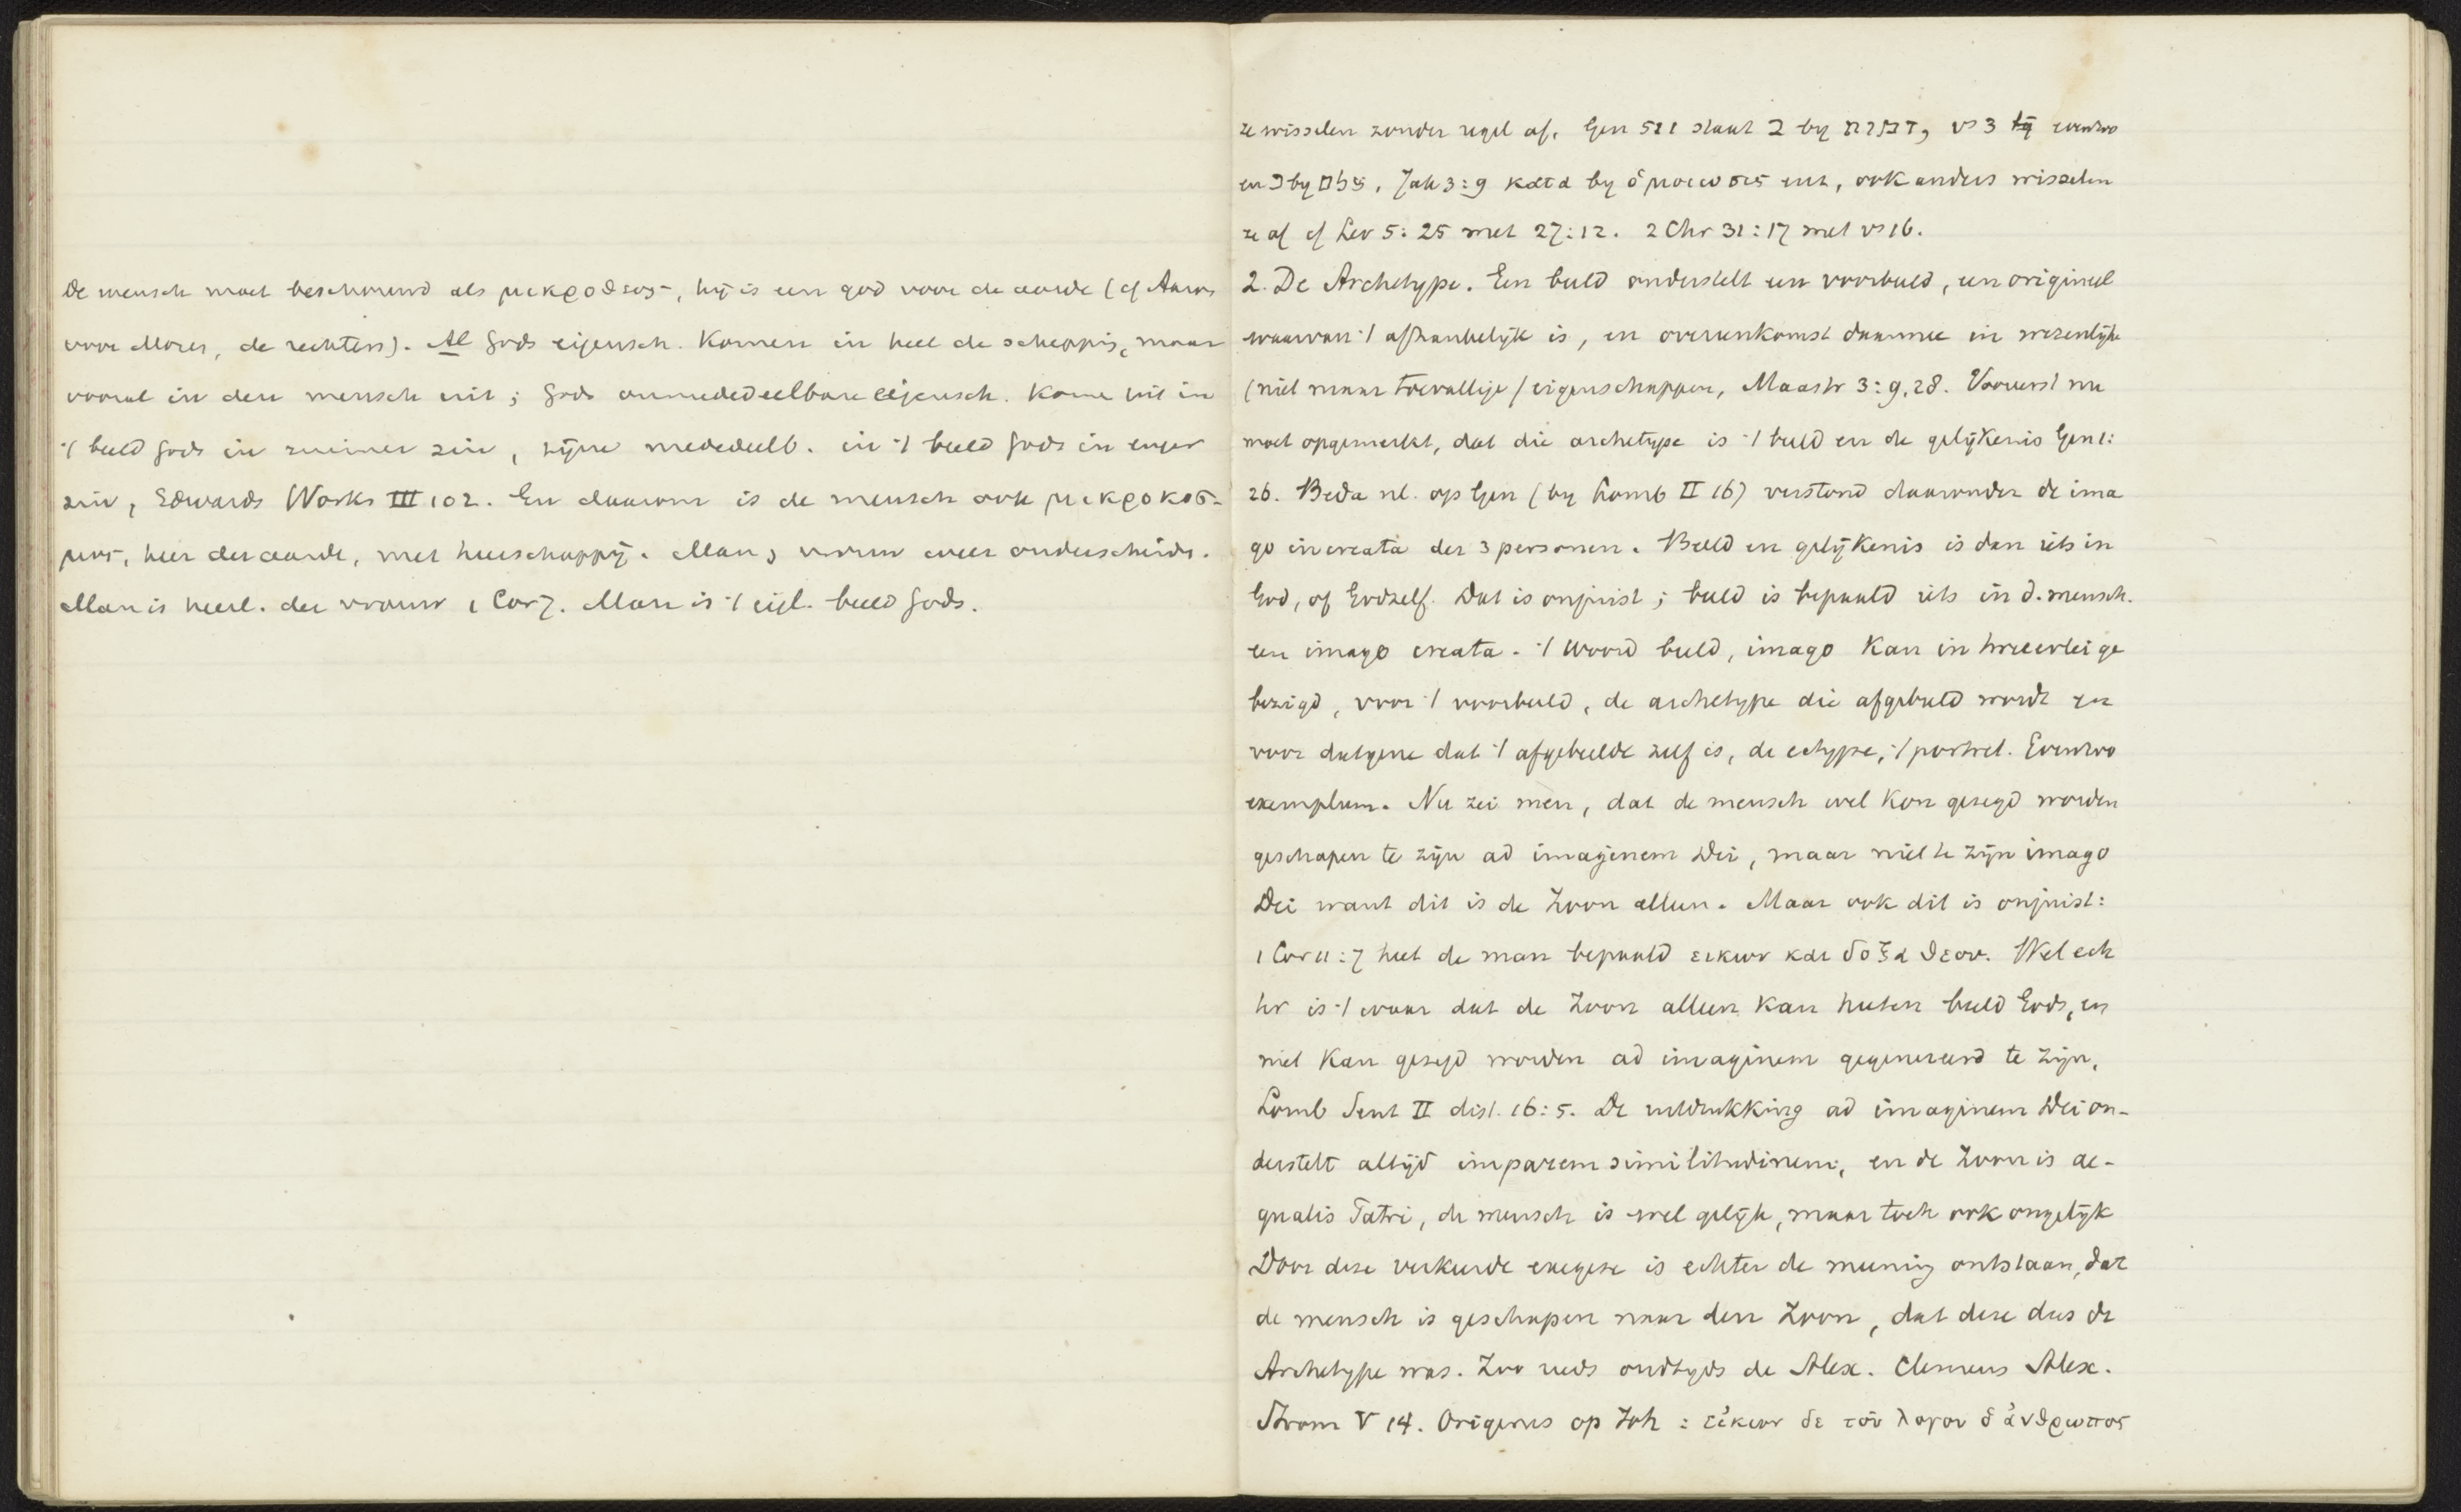 De mensch moet beschouwd als μικροθεος, hij is een god voor de aarde (cf Aäron
voor Mozes, de rechters). Al Gods eigensch. komen in heel de schepping, maar
vooral in den mensch uit; Gods onmededeelbare eigensch. kome uit in
't beeld Gods in ruimer zin, zijne mededeelb. in 't beeld Gods in enger
zin, Edwards Works III 102. En daarom is de mensch ook μικροκοσ-
μος, heer der aarde, met heerschappij. Man, vrouw weer onderscheide.
Man is heerl. der vrouw 1 Cor 7. Man is 't eigl. beeld Gods.
ze wisselen zonder regel af. Gen 5:1 staat ב by דמות, vs 3 evenzoo
en כ by צלם. Jak 3:9 κατα by ὁμοιωσις enz, ook anders wisselen
ze af cf Lev 5:25 met 27:12. 2 Chr 31:17 met vs 16.
2. De Archetype. Een beeld onderstelt een voorbeeld, een origineel
waarvan 't afhankelijk is, en overeenkomst daarmee in wezenlijke
(niet maar toevallige) eigenschappen, Maastr 3:9,28. Vooreerst nu
moet opgemerkt, dat die archetype is 't beeld en de gelijkenis Gen 1:
26. Beda nl. op Gen (by Lomb II 16) verstond daaronder de ima
go increata der 3 personen. Beeld en gelijkenis is dan iets in
God, of Godzelf. Dat is onjuist; beeld is bepaald iets in d. mensch.
een imago creata. 't Woord beeld, imago kan in tweeerlei ge
bezigd, voor 't voorbeeld, de archetype die afgebeeld wordt en
voor datgene dat 't afgebeelde zelf is, de ectype, 't portret. Evenzoo
exemplum. Nu zei men, dat de mensch wel kon gezegd worden
geschapen te zijn ad imaginem Dei, maar niet te zijn imago
Dei want dit is de Zoon alleen. Maar ook dit is onjuist:
1 Cor 11:7 heet de man bepaald εικων και δοξα θεου. Wel ech
ter is 't waar dat de Zoon alleen kan heeten beeld Gods, en
niet kan gezegd worden ad imaginem gegenereerd te zijn,
Lomb Sent II dist. 16:5. De uitdrukking ad imaginem Dei on-
derstelt altijd imparem similitudinem, en de Zoon is ae-
qualis Patri, de mensch is wel gelijk, maar toch ook ongelijk
Door deze verkeerde exegese is echter de meening ontstaan, dat
de mensch is geschapen naar den Zoon, dat deze dus de
Archetype was. Zoo reeds oudtyds de Alex. Clemens Alex.
Strom V 14. Origenes op Joh : εἰκων δε τοῦ λογου ὁ ἀνθρωπος